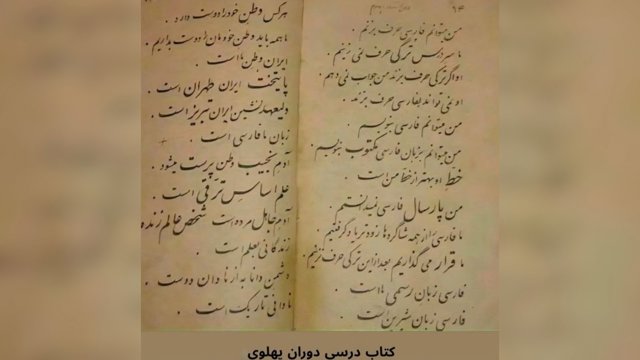 من میتوانم فارسی حرف بزنم.
ما سر درس ترکی حرف نمی زنیم.
او اگر ترکی حرف بزند من جواب نمی دهم.
او نمی تواند بفارسی حرف بزند.
من میتوانم فارسی بنویسم.
من میتوانم بزبان فارسی مکتوب بنویسم.
خط او بهتر از خط من است.
من پارسال فارسی نمیدانستم.
ما فارسی را از همه شاگردها زودتر یاد گرفتیم.
ما قرار می گذاریم بعد از این ترکی حرف نزنیم.
فارسی زبان رسمی ما است.
فارسی زبان شیرین است.
هر کس وطن خود را دوست دارد.
ما همه باید وطن خودمان را دوست بداریم.
ایران وطن ما است.
پایتخت ایران طهران است.
ولیعهد نشین ایران تبریز است.
زبان ما فارسی است.
آدم نجیب وطن پرست میشود.
علم اساس ترقی است.
آدم جاهل مرده است شخص عالم زنده
زندگانی بعلم است.
دشمن دانا به از نادان دوست.
نادانی تاریک است.
کتاب درسی دوران پهلوی